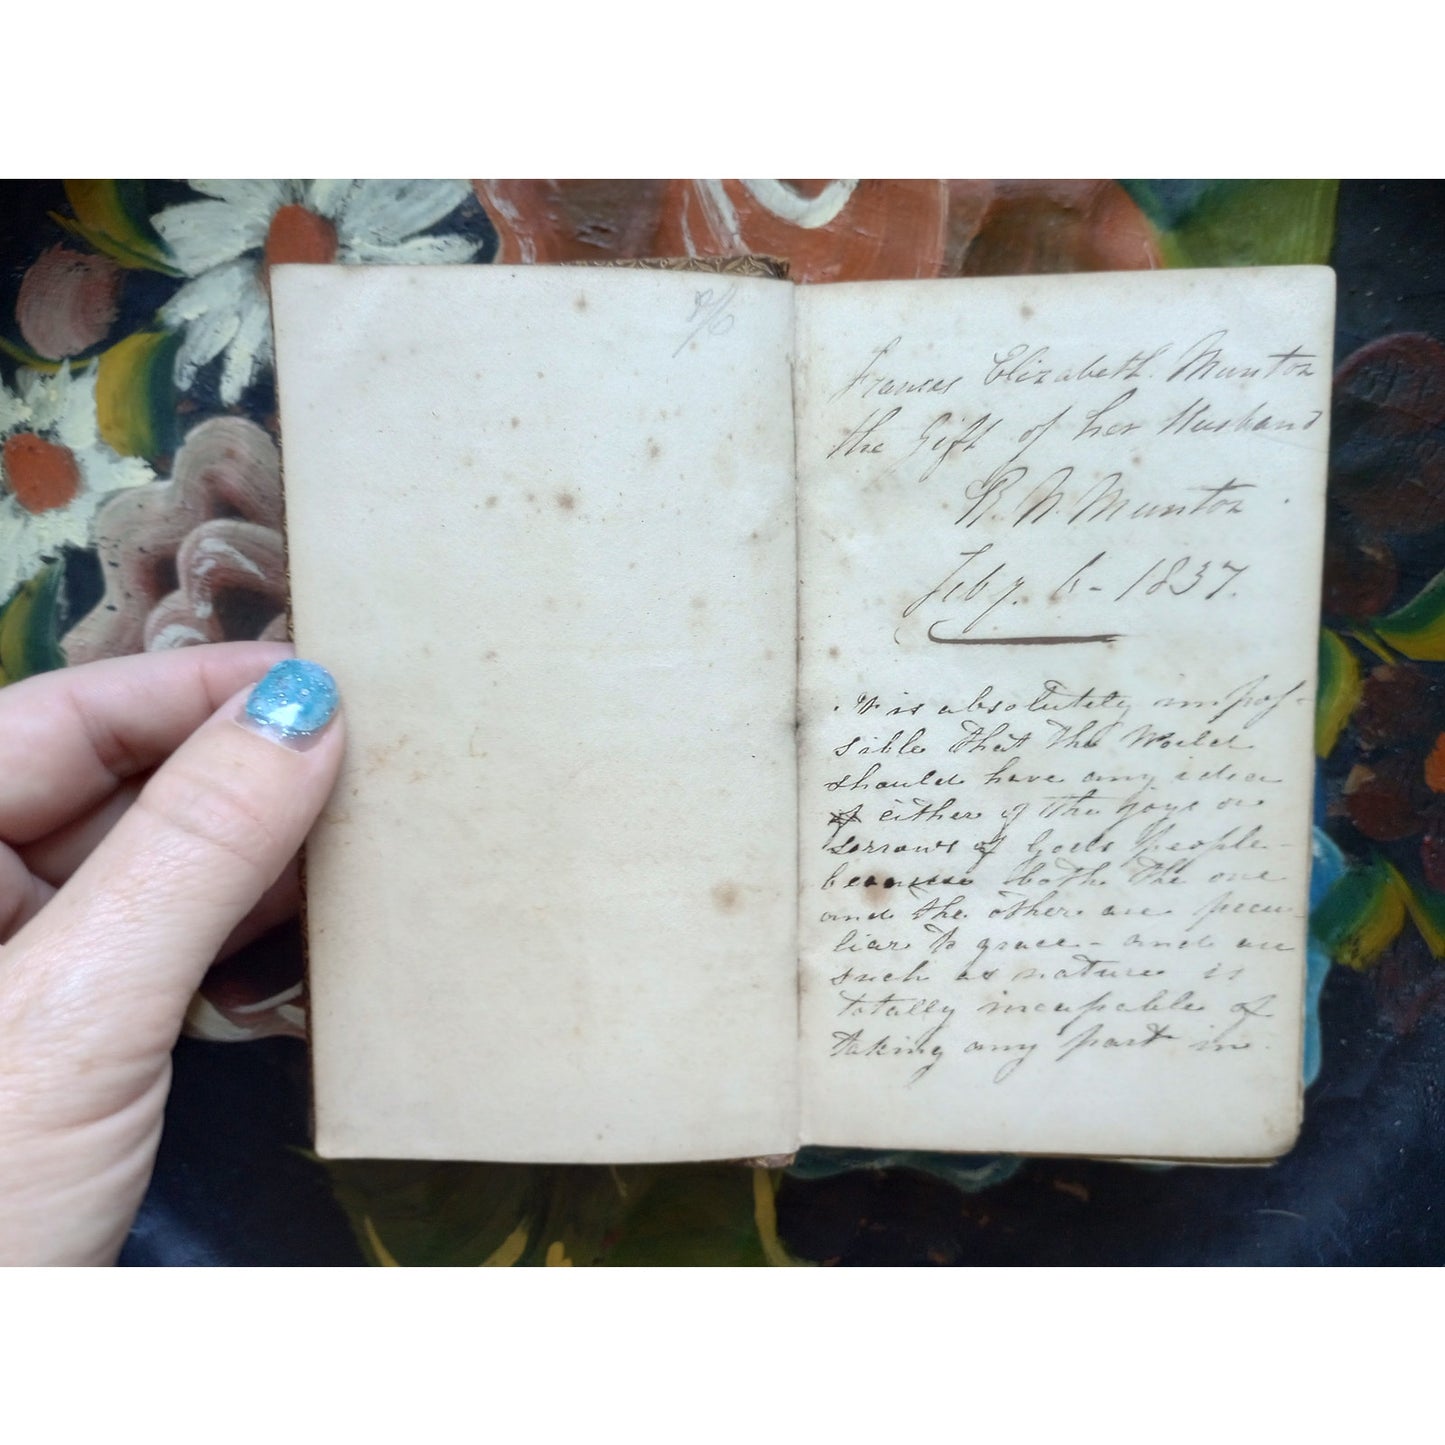 2/6
Frances Elizabeth Munton
the Gift of her Husband
R. N. Munton
Feby. 6 - 1837.
It is absolutely impos-
sible that the World
should have any idea
of either of the joys or
sorrows of God's people -
because both the one
and the other are pecu-
liar to grace - and are
such as nature is
totally incapable of
taking any part in.